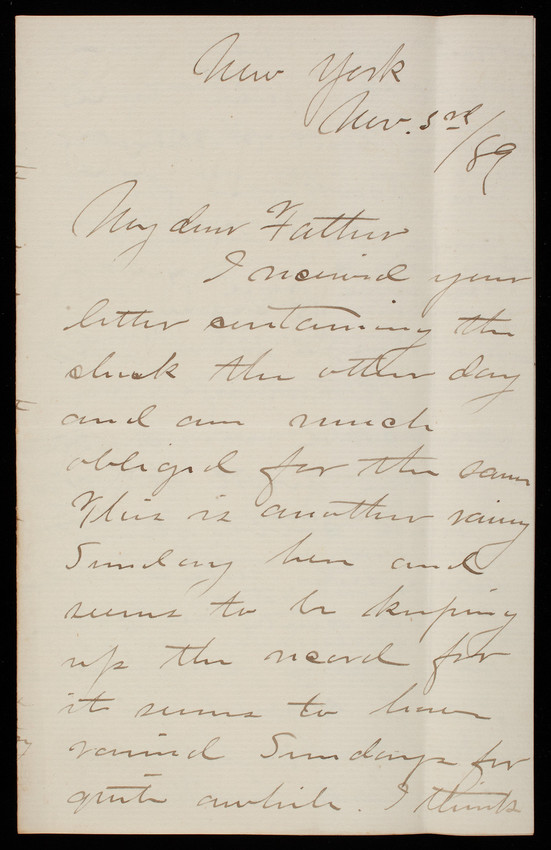 New York
Nov. 3rd/89
My dear Father
I received your
letter containing the
check the other day
and am much
obliged for the same
This is another rainy
Sunday here and
seems to be keeping
up the record for
it seems to have
rained Sundays for
quite awhile. I think